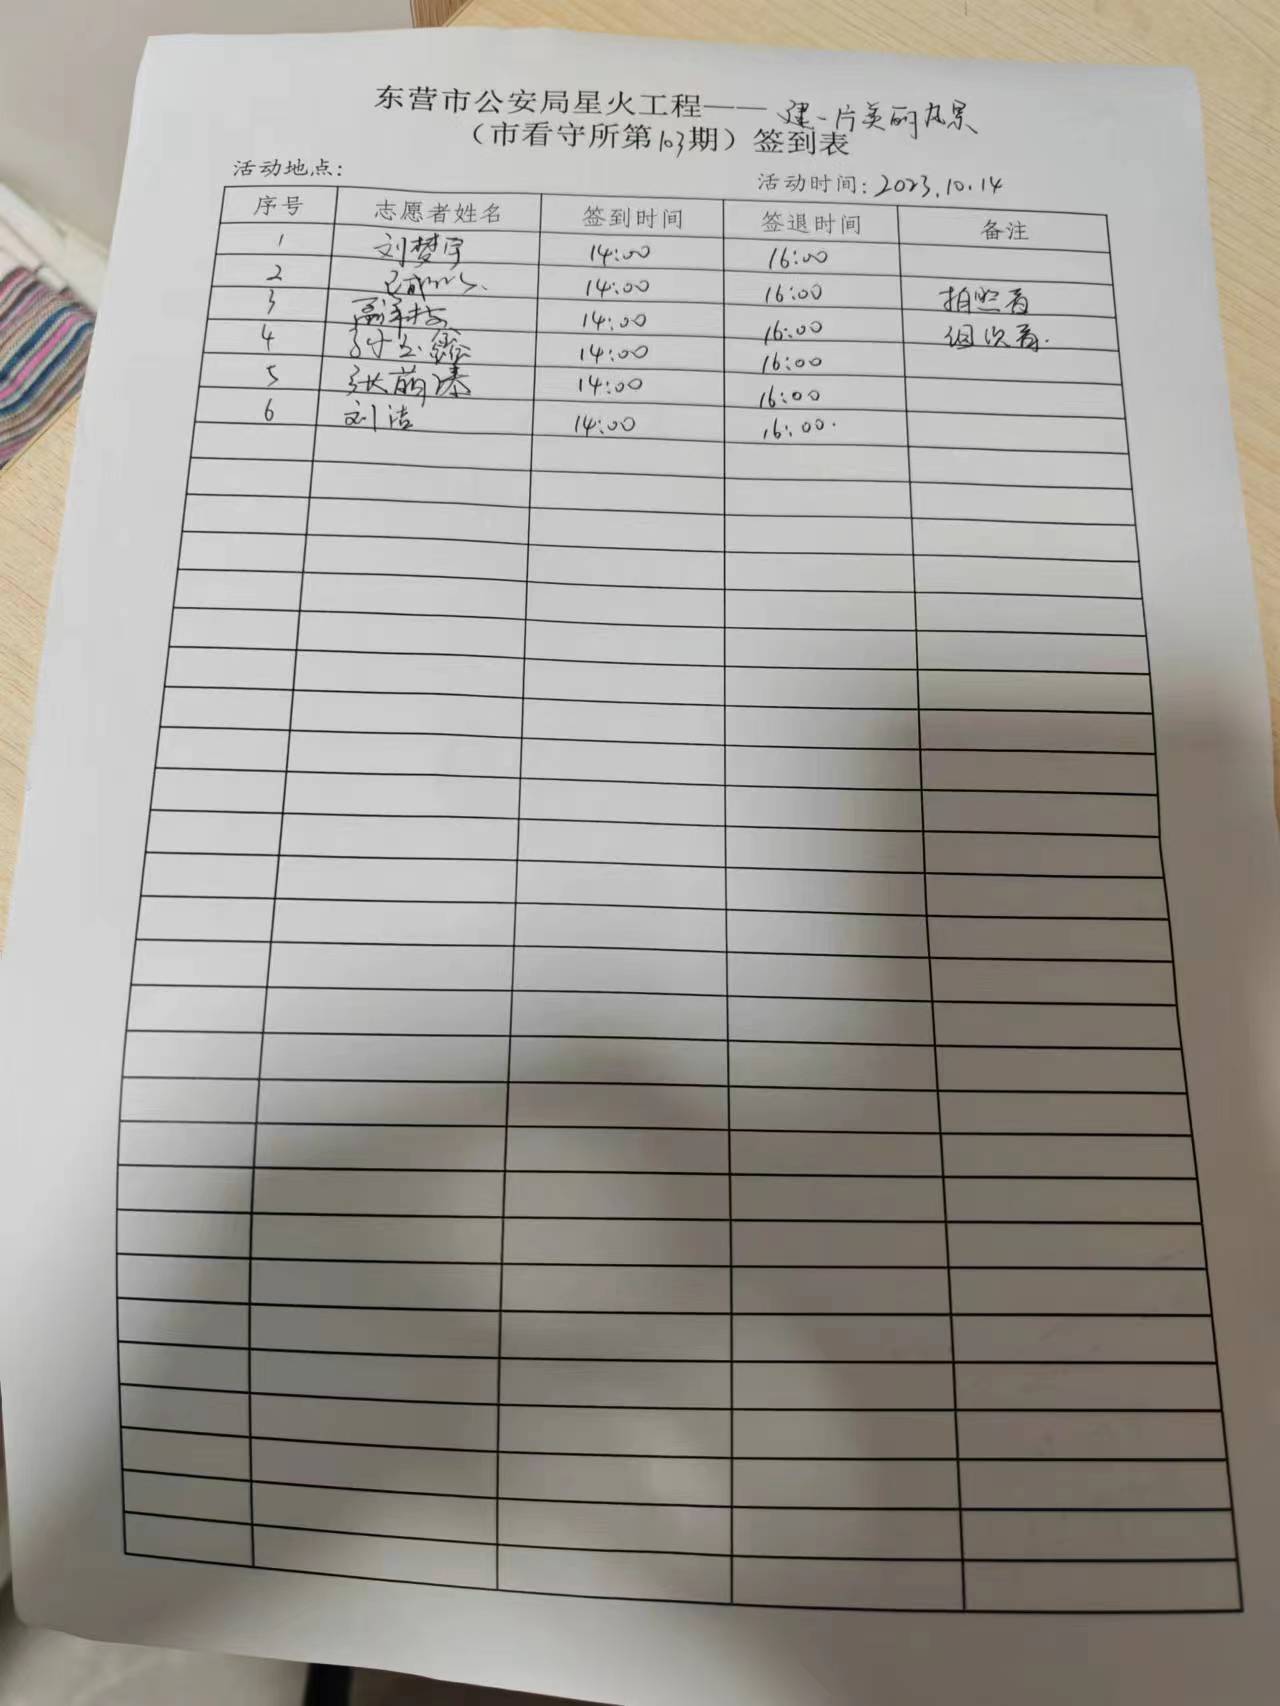 东营市公安局星火工程——建一片美丽风景
（市看守所第103期）签到表
活动地点： 活动时间：2023.10.14
序号 志愿者姓名 签到时间 签退时间 备注
1 刘梦宇 14:00 16:00
2 14:00 16:00 拍照者
3 14:00 16:00 组织者.
4 14:00 16:00
5 张萌 14:00 16:00
6 刘洁 14:00 16:00.